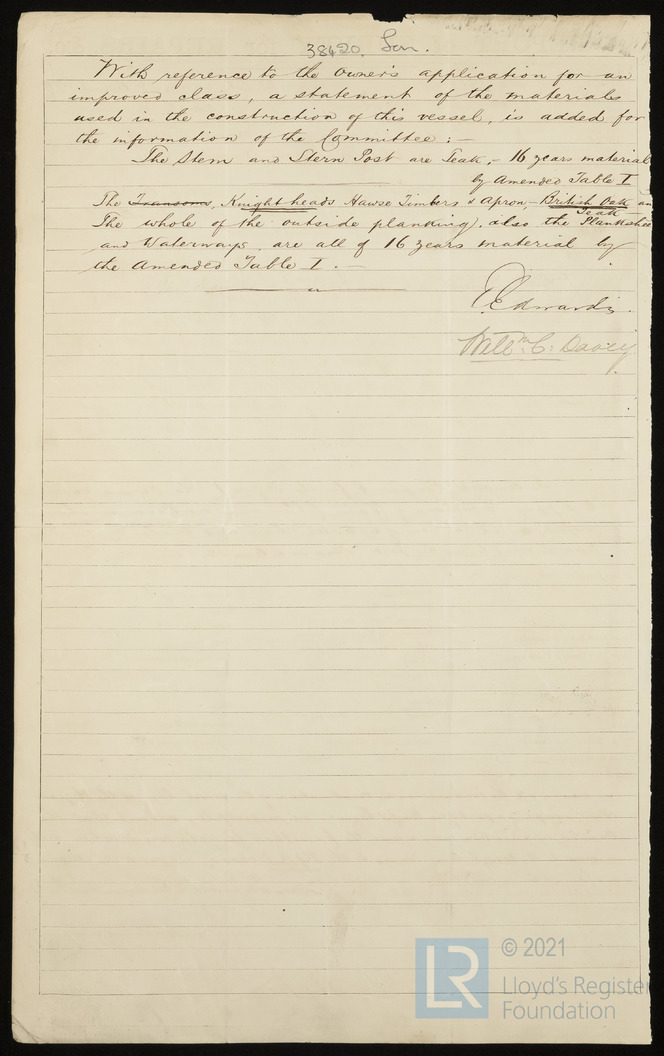 38420 Lon.
With reference to the Owner's application for an
improved class, a statement of the materials
used in the construction of this vessel, is added for
the information of the Committee: —
The Stem and Stern Post are Teak, – 16 years material
by Amended Table I
The Transoms, Knight heads Hawse Timbers & Apron, – British Oak an
Teak
The whole of the outside planking, also the Plankshee
and Waterways are all of 16 years material by
the Amended Table I. —
T. Edwards.
Willm C: Davey
LR
© 2021
Lloyd's Register
Foundation